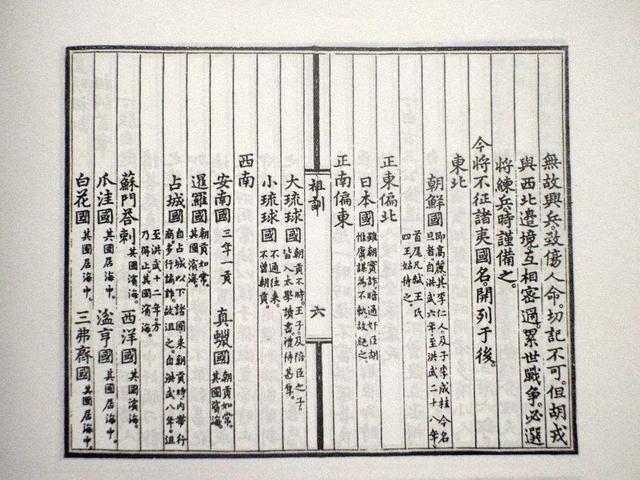 無故興兵。致傷人命。切記不可。但胡戎
與西北邊境。互相密邇。累世戰爭。必選
將練兵。時謹備之。
今將不征諸夷國名。開列于後。
東北
朝鮮國
即高麗。其李仁人。及子李成桂。今名
旦者。自洪武六年。至洪武二十八年。
首尾凡弒王氏
四王。姑待之。
正東偏北
日本國
雖朝實詐。暗通奸臣胡
惟庸。謀為不軌。故絕之。
正南偏東
祖訓
六
大琉球國
朝貢不時。王子及陪臣之子。
皆入太學讀書。禮待甚厚。
小琉球國
不通往來。
不曾朝貢。
西南
安南國
三年一貢
真蠟國
朝貢如常。
其國濱海。
暹羅國
朝貢如常。
其國濱海。
占城國
自占城以下諸國。來朝貢時。內帶行
商。多行譎詐。故沮之。自洪武八年。沮
至洪武十二年。方
乃得止。其國濱海。
蘇門荅剌
其國濱海。
西洋國
其國濱海。
爪洼國
其國居海中。
湓亨國
其國居海中。
白花國
其國居海中。
三弗齊國
其國居海中。